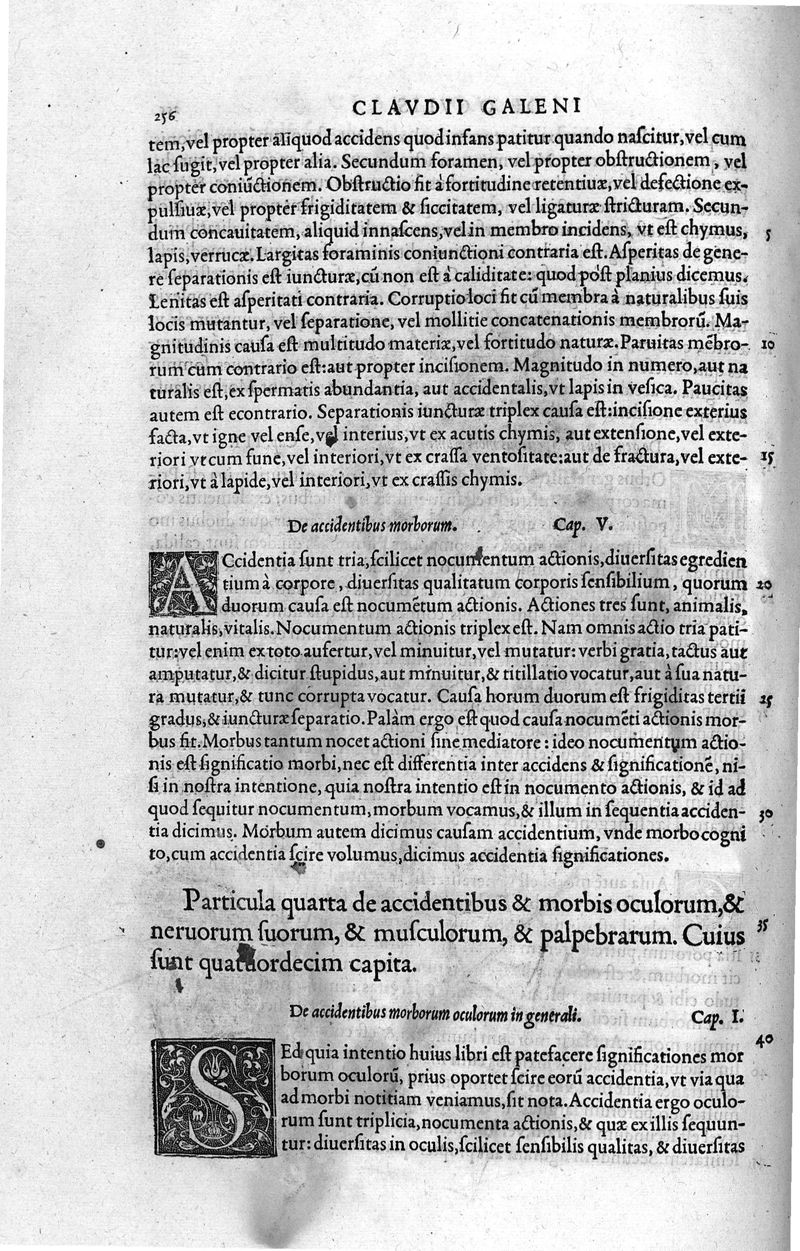 256
CLAVDII GALENI
tem, vel propter aliquod accidens quod infans patitur quando naſcitur, vel cum
lac ſugit, vel propter alia. Secundum foramen, vel propter obſtructionem, vel
propter coniūctionem. Obſtructio fit à fortitudine retentiuæ, vel defectione ex-
pulſiuæ, vel propter frigiditatem & ſiccitatem, vel ligaturæ ſtricturam. Secun-
dum concauitatem, aliquid innaſcens, vel in membro incidens, vt eſt chymus, 5
lapis, verrucæ. Largitas foraminis coniunctioni contraria eſt. Aſperitas de gene-
re ſeparationis eſt iuncturæ, cū non eſt à caliditate: quod pòſt planius dicemus.
Lenitas eſt aſperitati contraria. Corruptio loci fit cū membra à naturalibus ſuis
locis mutantur, vel ſeparatione, vel mollitie concatenationis membrorū. Ma-
gnitudinis cauſa eſt multitudo materiæ, vel fortitudo naturæ. Paruitas mēbro- 10
rum cum contrario eſt: aut propter inciſionem. Magnitudo in numero, aut na
turalis eſt, ex ſpermatis abundantia, aut accidentalis, vt lapis in veſica. Paucitas
autem eſt econtrario. Separationis iuncturæ triplex cauſa eſt: inciſione exterius
facta, vt igne vel enſe, vel interius, vt ex acutis chymis, aut extenſione, vel exte-
riori vt cum fune, vel interiori, vt ex craſſa ventoſitate: aut de fractura, vel exte- 15
riori, vt à lapide, vel interiori, vt ex craſſis chymis.
De accidentibus morborum. Cap. V.
ACcidentia ſunt tria, ſcilicet nocumentum actionis, diuerſitas egredien
tium à corpore, diuerſitas qualitatum corporis ſenſibilium, quorum 20
duorum cauſa eſt nocumētum actionis. Actiones tres ſunt, animalis,
naturalis, vitalis. Nocumentum actionis triplex eſt. Nam omnis actio tria pati-
tur: vel enim ex toto aufertur, vel minuitur, vel mutatur: verbi gratia, tactus aut
amputatur, & dicitur ſtupidus, aut minuitur, & titillatio vocatur, aut à ſua natu-
ra mutatur, & tunc corrupta vocatur. Cauſa horum duorum eſt frigiditas tertii 25
gradus, & iuncturæ ſeparatio. Palàm ergo eſt quod cauſa nocumēti actionis mor-
bus fit. Morbus tantum nocet actioni ſine mediatore: ideo nocumentum actio-
nis eſt ſignificatio morbi, nec eſt differentia inter accidens & ſignificationē, ni-
ſi in noſtra intentione, quia noſtra intentio eſt in nocumento actionis, & id ad
quod ſequitur nocumentum, morbum vocamus, & illum in ſequentia acciden- 30
tia dicimus. Morbum autem dicimus cauſam accidentium, vnde morbo cogni
to, cum accidentia ſcire volumus, dicimus accidentia ſignificationes.
Particula quarta de accidentibus & morbis oculorum, &
neruorum ſuorum, & muſculorum, & palpebrarum. Cuius 35
ſunt quatuordecim capita.
De accidentibus morborum oculorum in generali. Cap. I.
40
SEd quia intentio huius libri eſt patefacere ſignificationes mor
borum oculorū, prius oportet ſcire eorū accidentia, vt via qua
ad morbi notitiam veniamus, ſit nota. Accidentia ergo oculo-
rum ſunt triplicia, nocumenta actionis, & quæ ex illis ſequun-
tur: diuerſitas in oculis, ſcilicet ſenſibilis qualitas, & diuerſitas